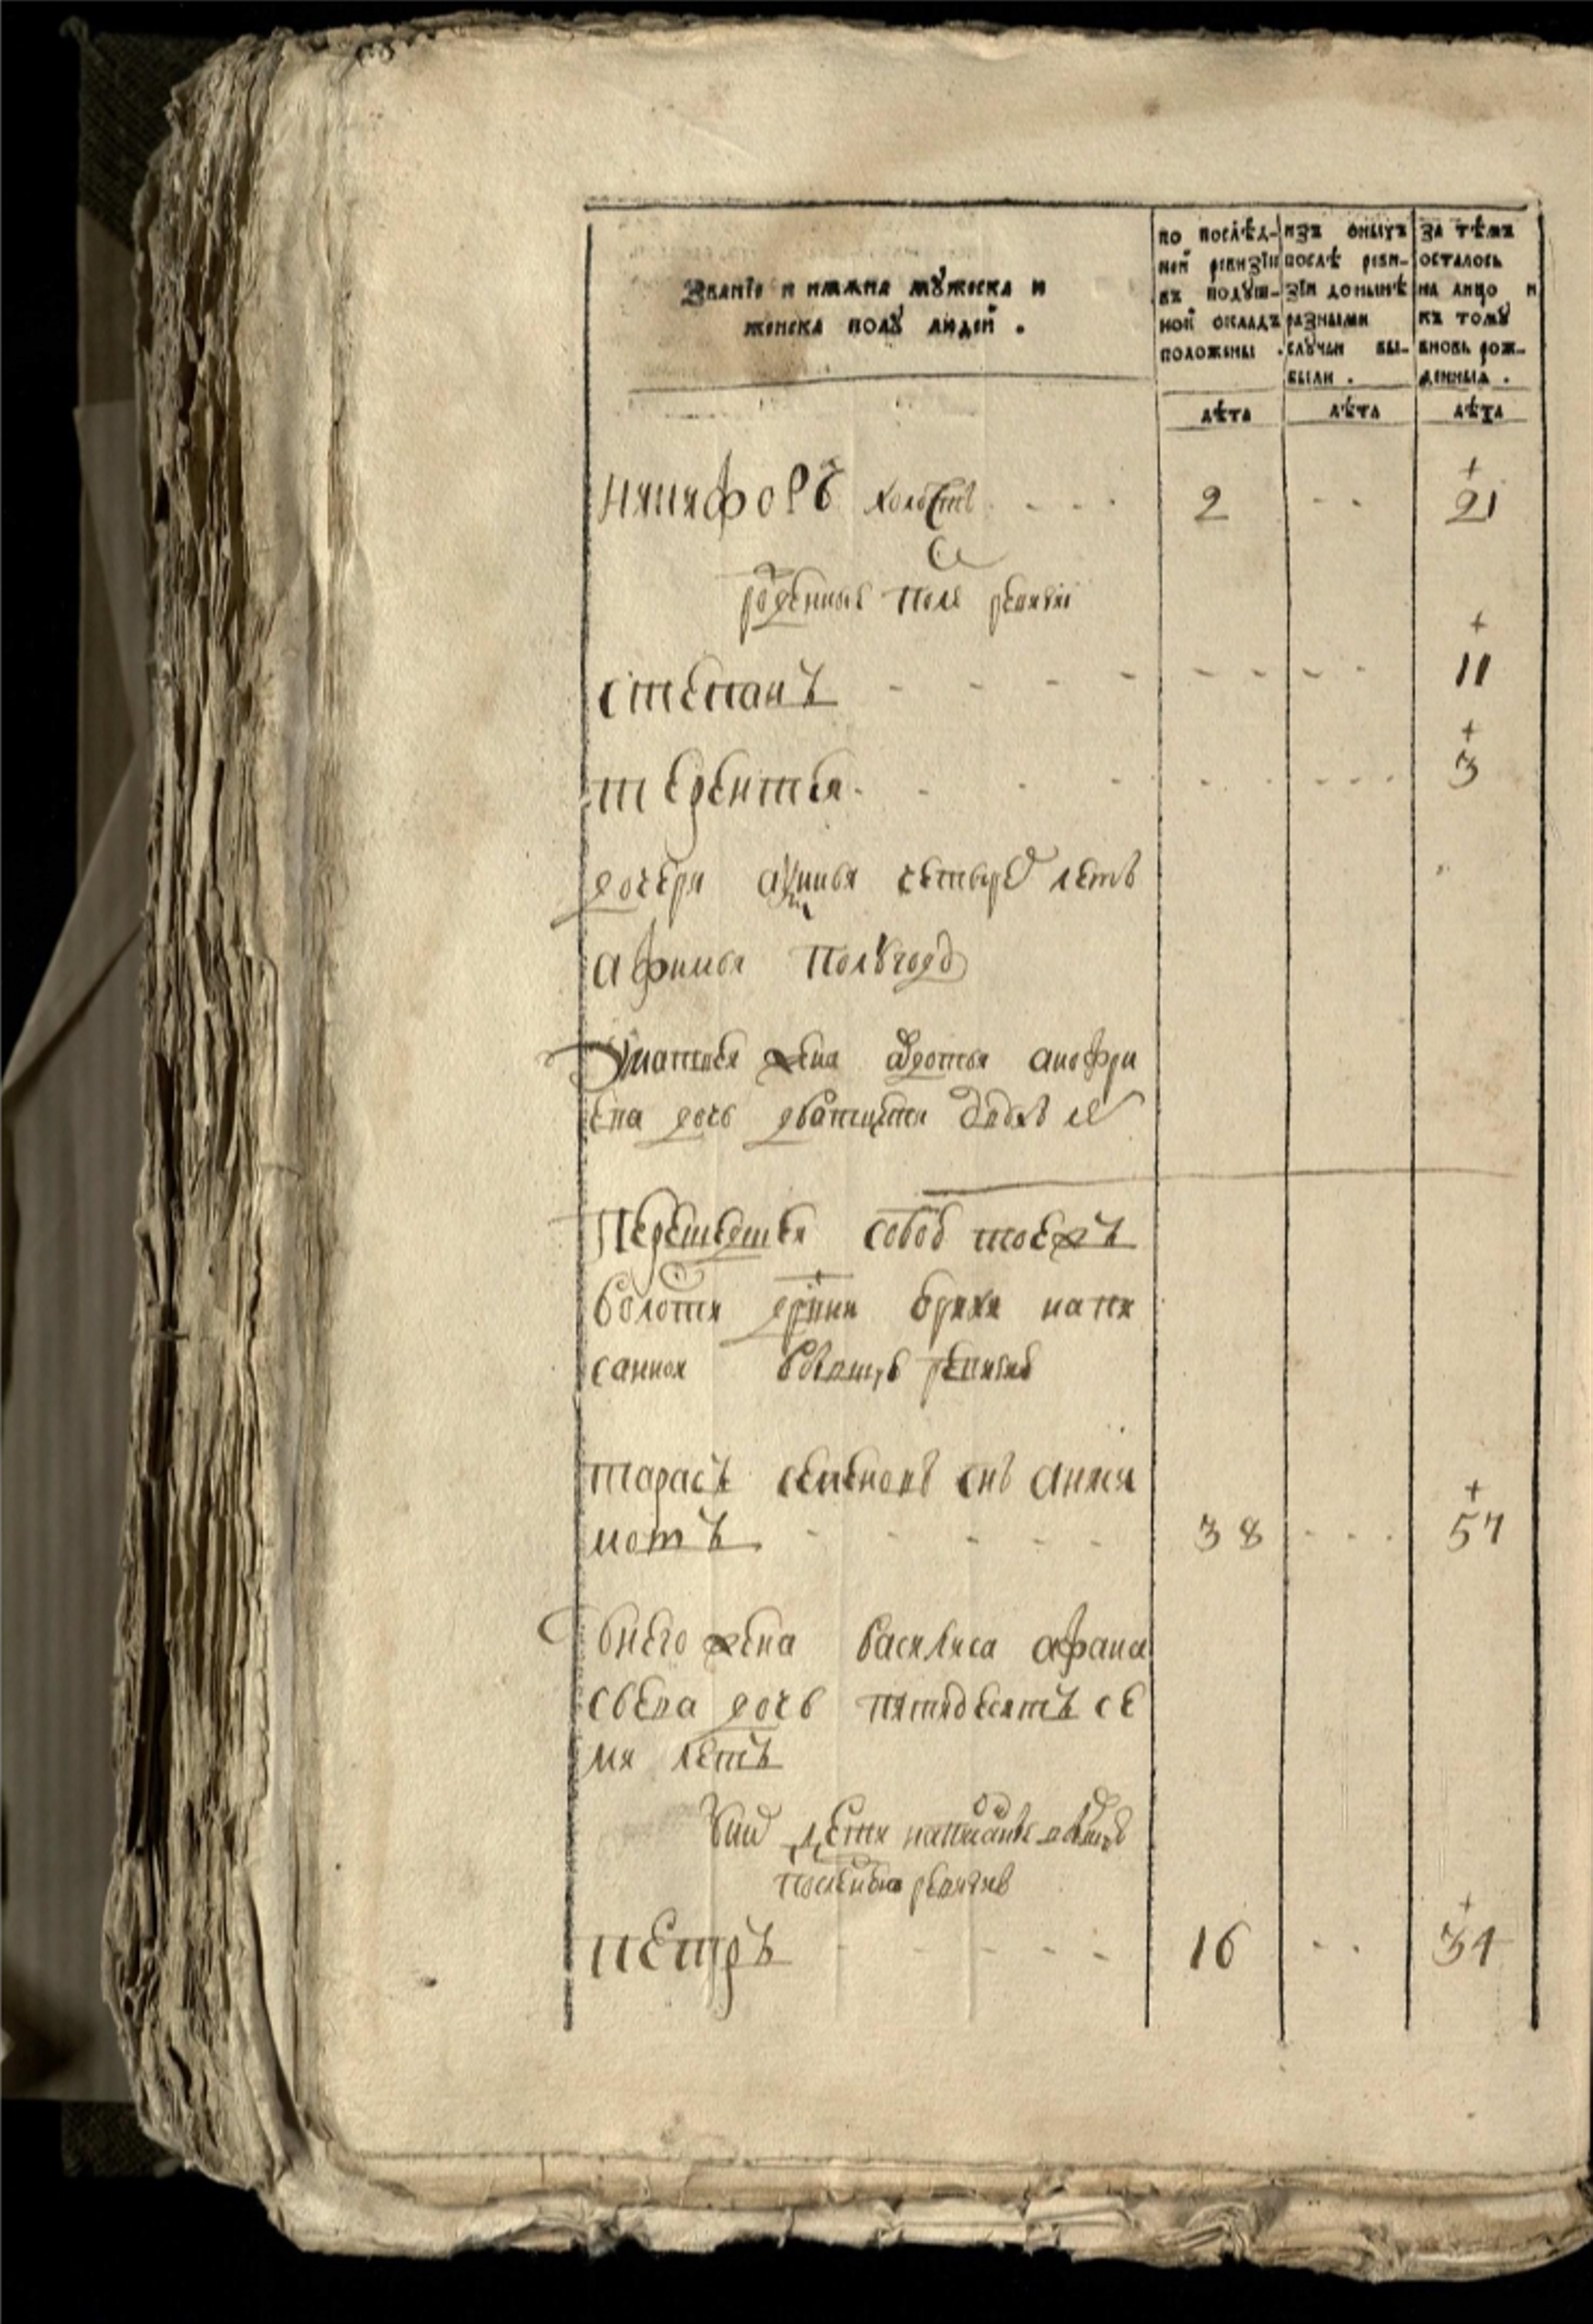 Званїе и имяна мꙋжеска и
женска полꙋ людей .
по послѣд-
ней ревизїи
въ подꙋш-
ной окладъ
положены .
изъ оныхъ
послѣ реви-
зїи донынѣ
разными
слꙋчаи вы-
были .
за тѣмъ
осталось
на лицо и
къ томꙋ
вновь рож-
денныя .
лѣта лѣта лѣта
никифоръ холостъ 2 + 21
рожденныя после ревизіи
степанъ + 11
терентеи + 3
дочери анинья четырех летъ
афимья полугоду
жена авдотья анофри
ева дочь дватцати
перешедшеи собою тоежъ
волости
санной ревизіи
тарасъ семеновъ снъ анки
мотъ 38 + 57
внего жена василиса афана
сьева дочь пятидесятъ се
ми летъ
унихъ дети написанные
ревизіи
петръ 16 + 34